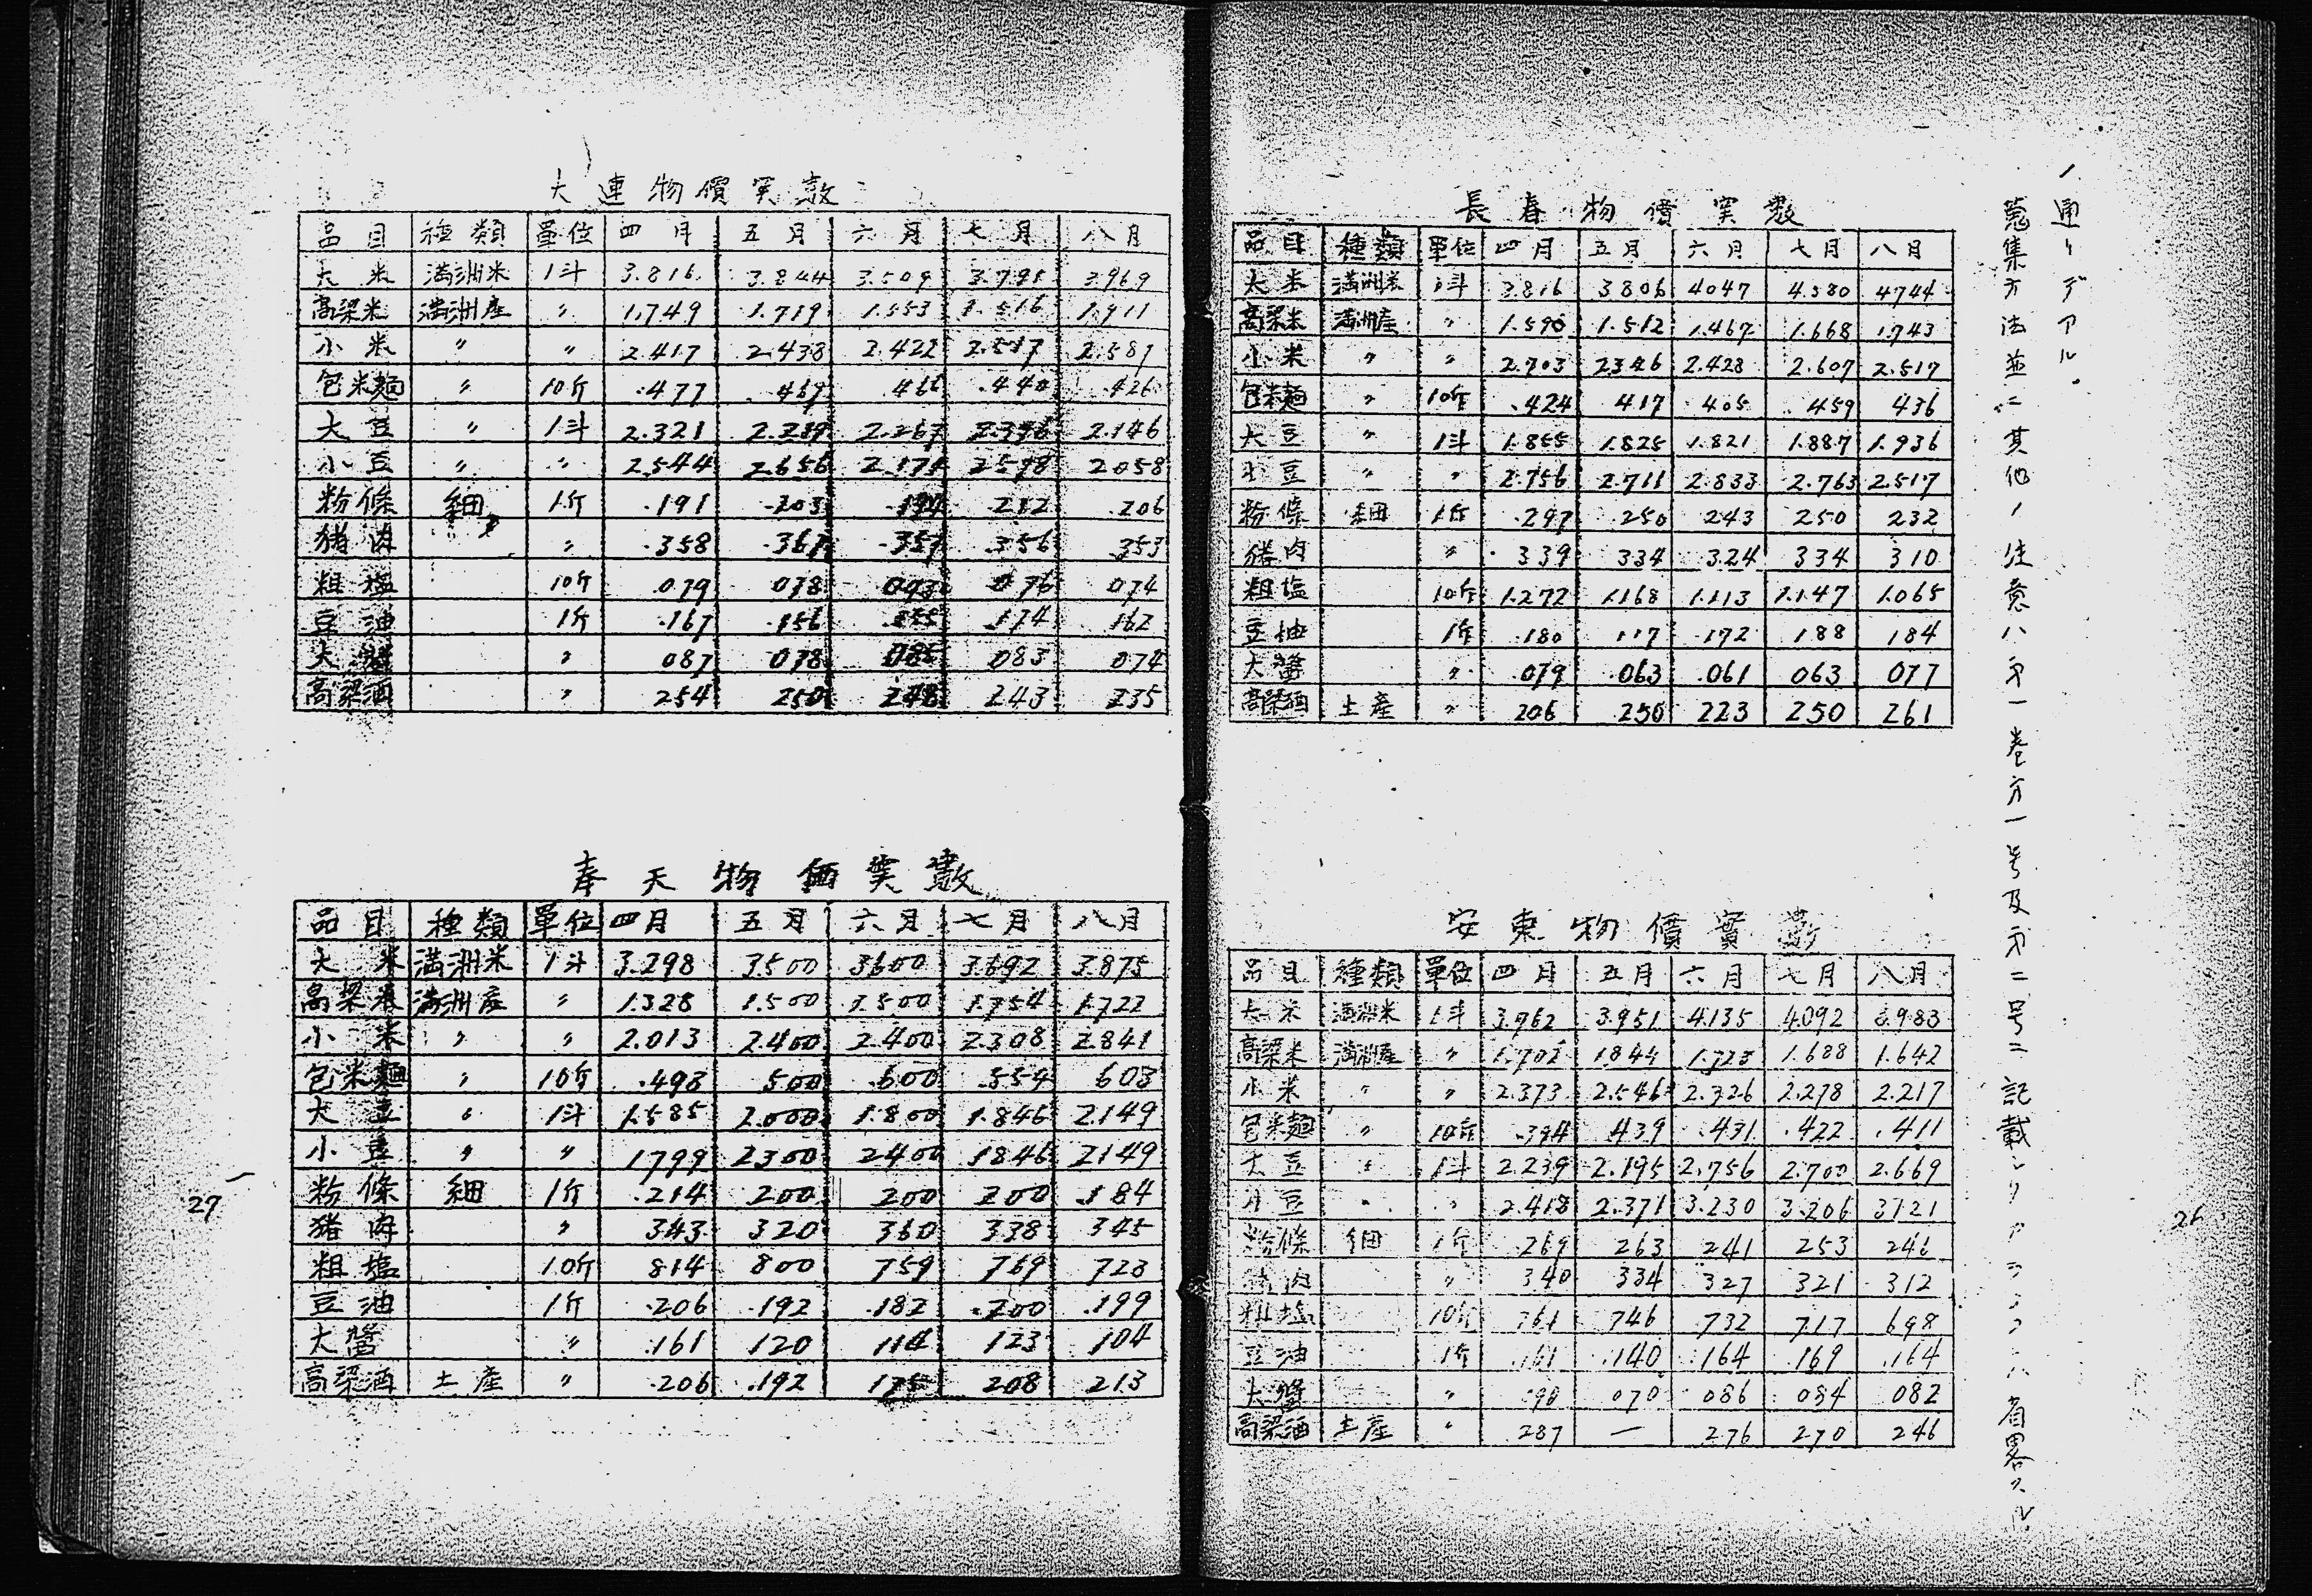 ノ通リデアル。
蒐集方法並ニ其他ノ注意ハ第一巻第一号及第二号ニ記載シ 省畧スル
長春物價実数
品目 種類 單位 四月 五月 六月 七月 八月
大米 満洲米 1斗 3.816 3.806 4.047 4.580 4.744
高梁米 満洲産 〃 1.590 1.512 1.467 1.668 1.743
小米 〃 〃 2.703 2.346 2.428 2.607 2.517
包米麺 〃 10斤 .424 .417 .405 .459 436
大豆 〃 1斗 1.855 1.825 1.821 1.887 1.936
小豆 〃 〃 2.756 2.711 2.833 2.763 2.517
粉條 細 1斤 .297 .250 .243 250 232
猪肉 〃 .339 334 .324 334 310
粗塩 10斤 1.272 1.168 1.113 1.147 1.065
豆油 1斤 .180 .172 188 184
大醬 〃 .079 .063 .061 063 077
高梁酒 土産 〃 206 .250 223 250 261
安東物價實数
品目 種類 單位 四月 五月 六月 七月 八月
大米 満洲米 1斗 3.962 3.951 4.135 4.092 3.983
高梁米 満洲産 〃 1.702 1.844 1.723 1.688 1.642
小米 〃 〃 2.373 2.546 2.326 2.278 2.217
包米麺 〃 10斤 .394 .439 .431 .422 .411
大豆 〃 1斗 2.239 2.195 2.756 2.700 2.669
小豆 〃 〃 2.418 2.371 3.230 3.206 3.121
粉條 細 1斤 .269 263 241 253 246
猪肉 〃 340 334 327 321 312
粗塩 10斤 761 746 732 717 698
豆油 1斤 .161 .140 .164 .169 .164
大醬 〃 070 086 084 082
高梁酒 土産 〃 287 — 276 270 246
26
大連物價実数
品目 種類 單位 四月 五月 六月 七月 八月
大米 満洲米 1斗 3.816 3.844 3.509 3.791 3.969
高梁米 満洲産 〃 1.749 1.719 1.553 1.516 1.911
小米 〃 〃 2.417 2.438 2.422 2.517 2.581
包米麺 〃 10斤 .477 .469 .440 .426
大豆 〃 1斗 2.321 2.219 2.267 2.396 2.146
小豆 〃 〃 2.544 2.656 2.171 2.598 2.058
粉條 細 1斤 .191 .203 .194 .212 .206
猪肉 〃 .358 .367 .357 .356 353
粗塩 10斤 .079 078 073 076 074
豆油 1斤 .167 .156 .155 .174 162
大醬 〃 087 078 085 083 074
高梁酒 〃 254 250 248 243 235
奉天物価実数
品目 種類 單位 四月 五月 六月 七月 八月
大米 満洲米 1斗 3.298 3.500 3.600 3.692 3.875
高梁米 満洲産 〃 1.328 1.500 1.500 1.754 1.722
小米 〃 〃 2.013 2.400 2.400 2.308 2.841
包米麺 〃 10斤 .493 500 .600 .554 603
大豆 〃 1斗 1.585 2.000 1.800 1.846 2.149
小豆 〃 〃 1.799 2.300 2.400 1.846 2.149
粉條 細 1斤 .214 200 200 200 .184
猪肉 〃 343 320 360 338 345
粗塩 10斤 814 800 759 769 723
豆油 1斤 .206 .192 .182 .200 .199
大醬 〃 .161 120 114 123 104
高梁酒 土産 〃 .206 .192 175 208 213
27